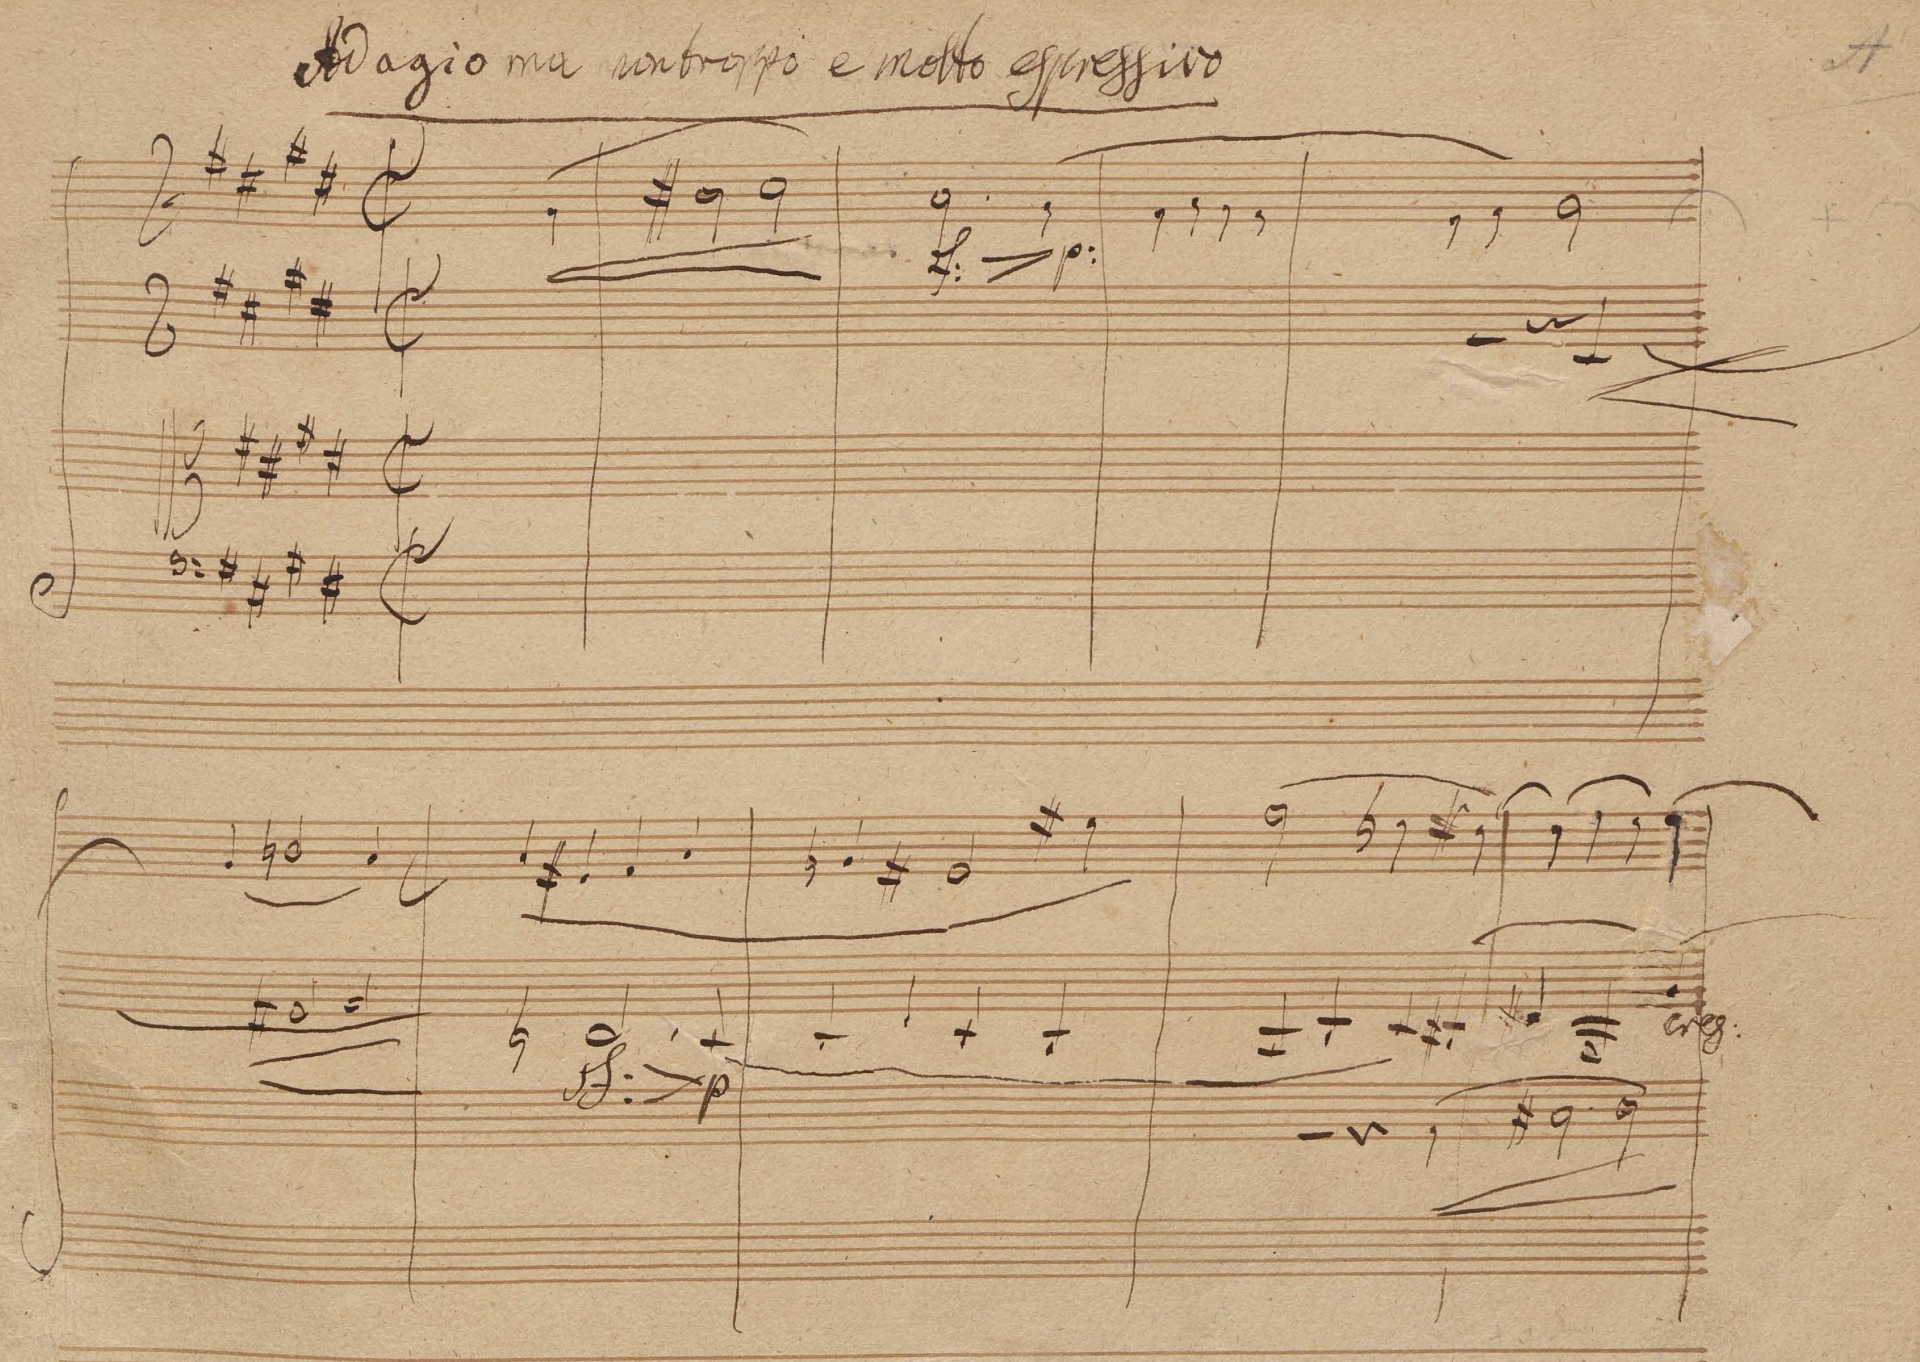 Adagio ma non troppo e molto espressivo
A
sf: p:
cres:
sf: p